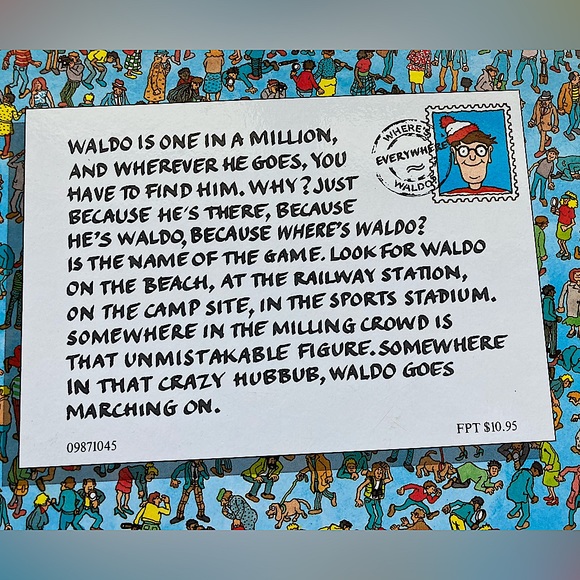 WALDO IS ONE IN A MILLION,
AND WHEREVER HE GOES, YOU
HAVE TO FIND HIM. WHY? JUST
BECAUSE HE'S THERE, BECAUSE
HE'S WALDO, BECAUSE WHERE'S WALDO?
IS THE NAME OF THE GAME. LOOK FOR WALDO
ON THE BEACH, AT THE RAILWAY STATION,
ON THE CAMP SITE, IN THE SPORTS STADIUM.
SOMEWHERE IN THE MILLING CROWD IS
THAT UNMISTAKABLE FIGURE. SOMEWHERE
IN THAT CRAZY HUBBUB, WALDO GOES
MARCHING ON.
WHERE'S
EVERYWHERE
WALDO
09871045
FPT $10.95